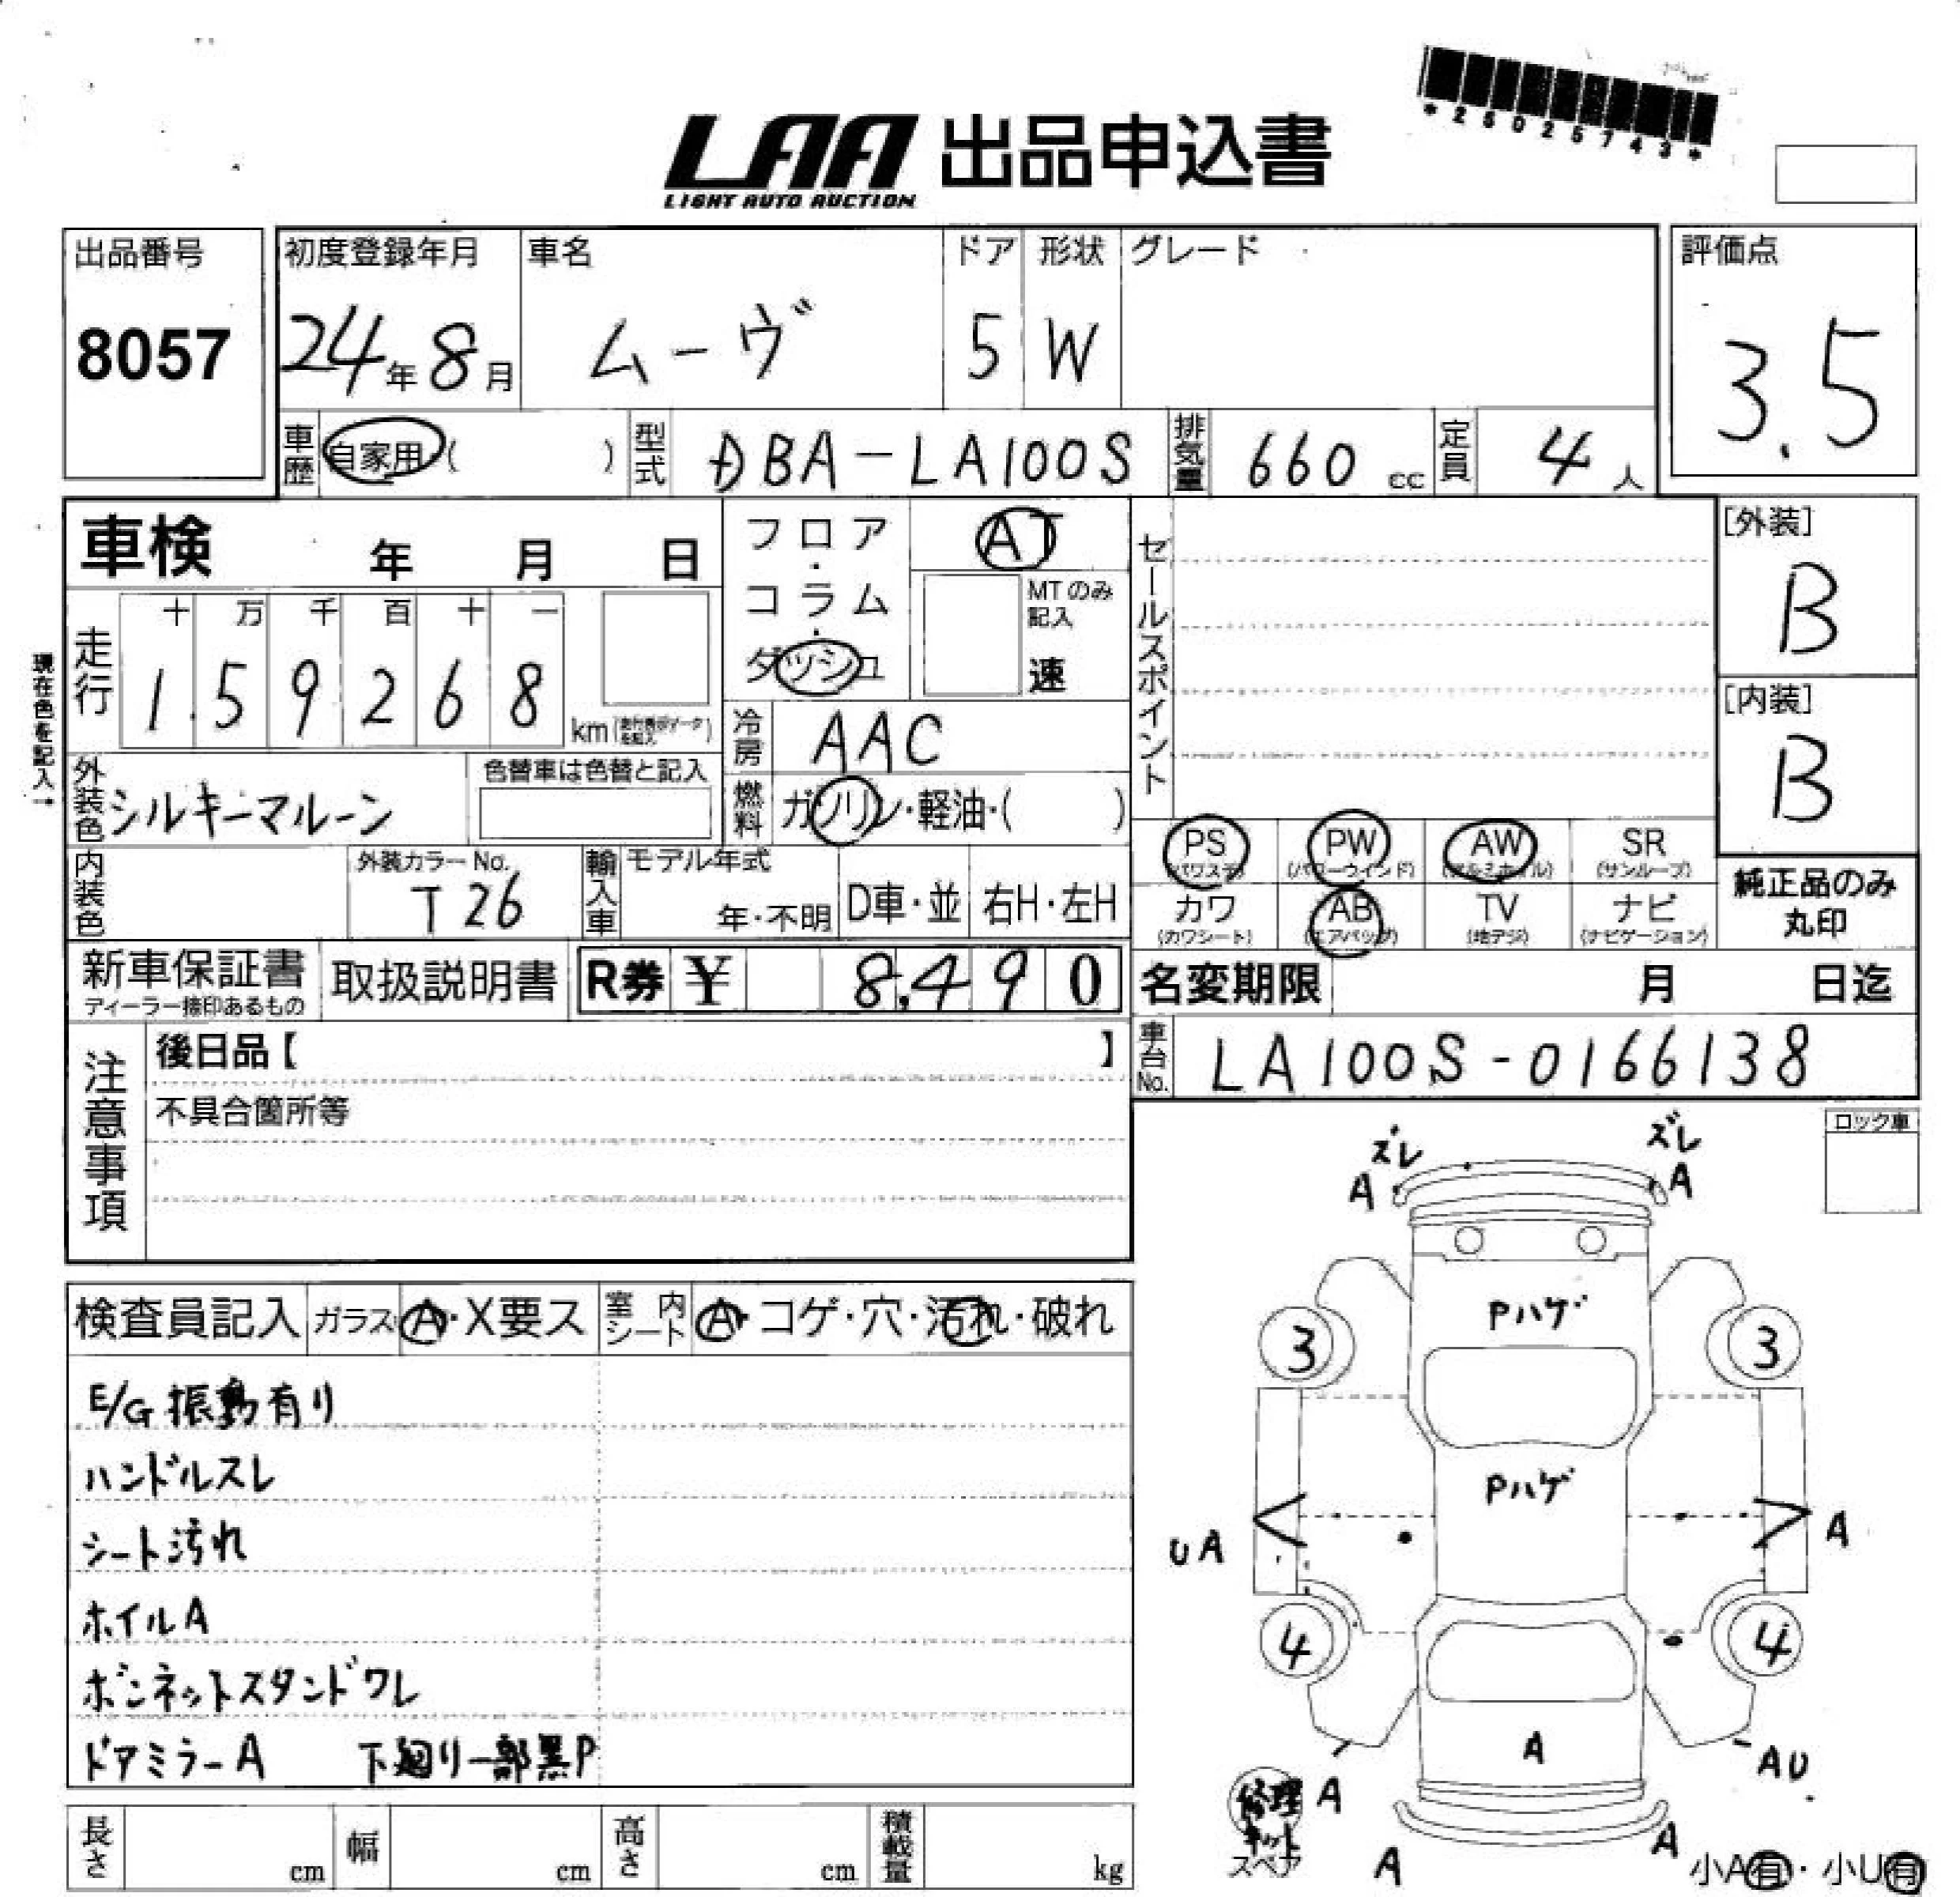 *25025743*
LAA 出品申込書
LIGHT AUTO AUCTION
出品番号
8057
初度登録年月
24年8月
車名
ムーヴ
ドア
5
形状
W
グレード
評価点
3.5
車歴
自家用( )
型式
DBA-LA100S
排気量
660 cc
定員
4人
車検 年 月 日
現在色を記入→
走行
十 万 千 百 十 一
1 5 9 2 6 8
km
フロア・コラム・ダッシュ
AT
MTのみ記入
速
セールスポイント
[外装]
B
[内装]
B
冷房
AAC
外装色
シルキーマルーン
色替車は色替と記入
燃料
ガソリン・軽油・( )
内装色
外装カラーNo.
T26
輸入車
モデル年式
年・不明
D車・並
右H・左H
PS
(パワステ)
PW
(パワーウインド)
AW
(アルミホイル)
SR
(サンルーフ)
カワ
(カワシート)
AB
(エアバック)
TV
(地デジ)
ナビ
(ナビゲーション)
純正品のみ
丸印
新車保証書
ディーラー捺印あるもの
取扱説明書
R券 ¥ 8,490
名変期限 月 日迄
車台No.
LA100S-0166138
注意事項
後日品【 】
不具合箇所等
ロック車
ズレ
ズレ
A
A
Pハゲ
3
3
Pハゲ
UA
A
4
4
A
A
AU
修理キット
スペア
A
A
小A有・小U有
検査員記入
ガラス
A・X要ス
室内シート
A・コゲ・穴・汚れ・破れ
E/G振動有り
ハンドルスレ
シート汚れ
ホイルA
ボンネットスタンドワレ
ドアミラーA 下廻り一部黒P
長さ cm
幅 cm
高さ cm
積載量 kg